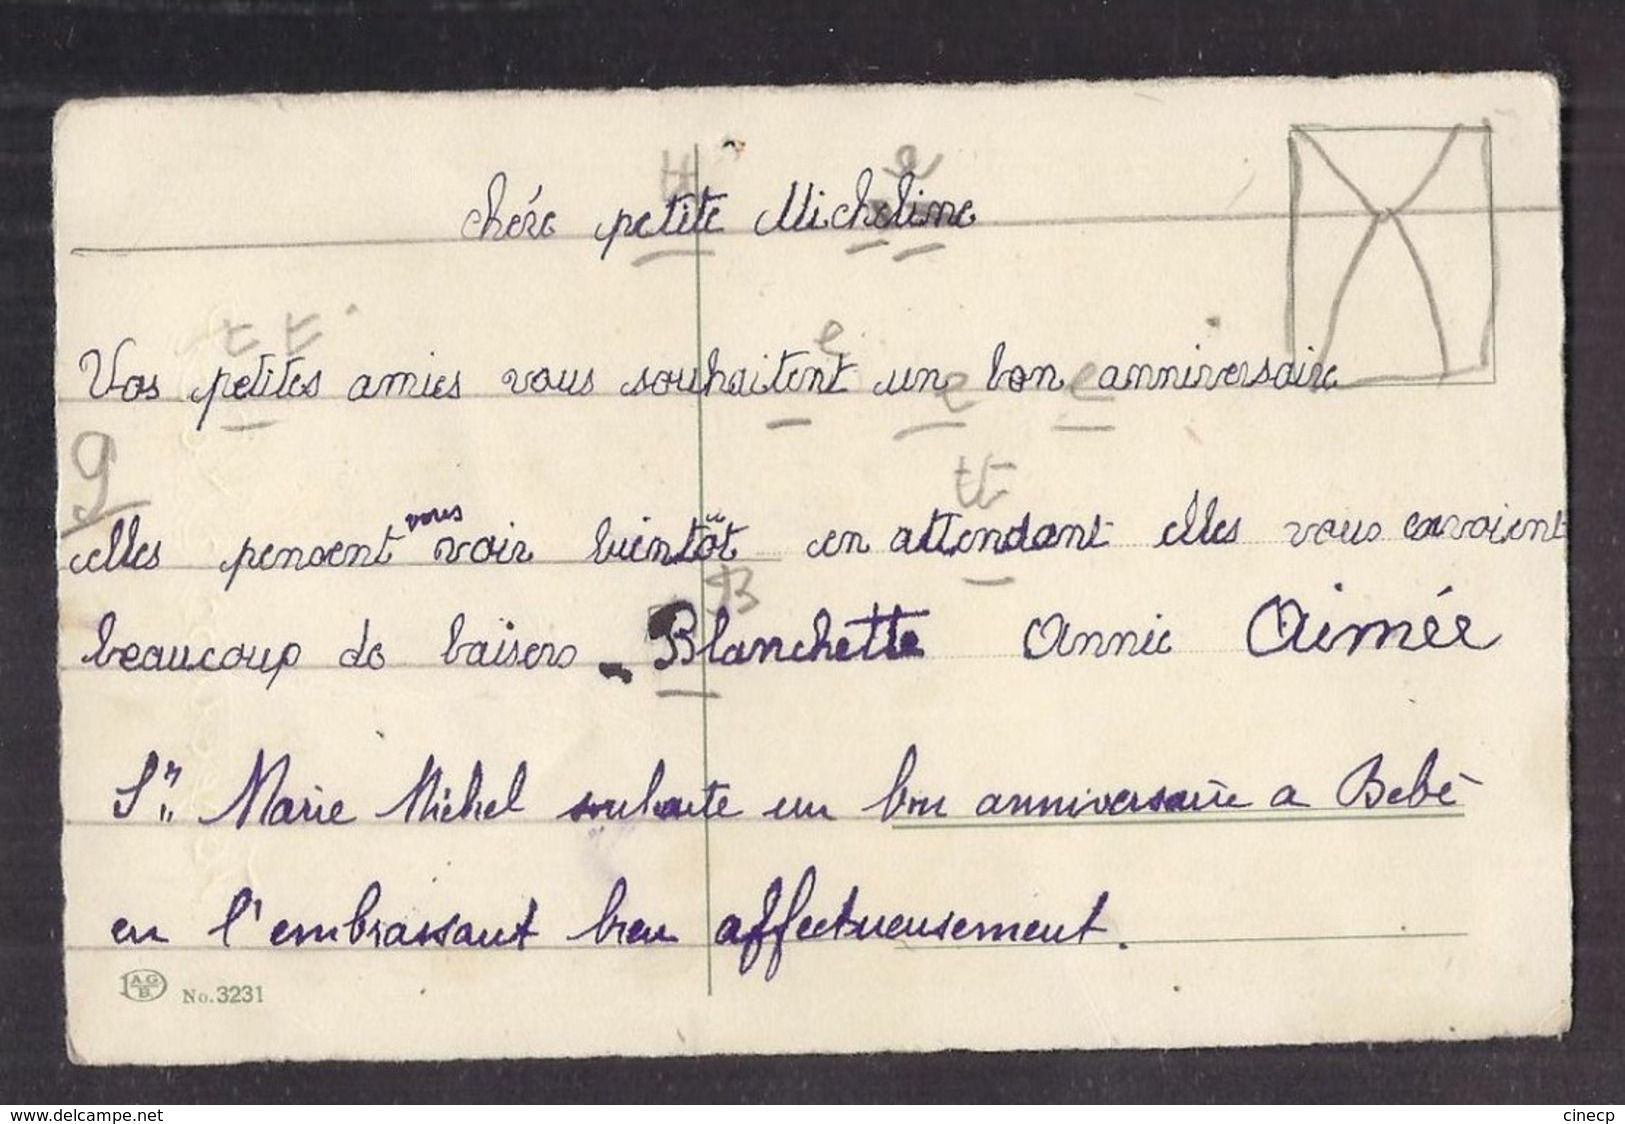 chére petite Micheline
Vos petites amies vous souhaitent un bon anniversaire
elles pensent vous voir bientôt en attendant elles vous envoient
beaucoup de baisers - Blanchette Annie Aimée
Sr Marie Michel souhaite un bon anniversaire a Bebé
en l'embrassant bien affectueusement.
AG
B.
No. 3231
www.delcampe.net
cinecp